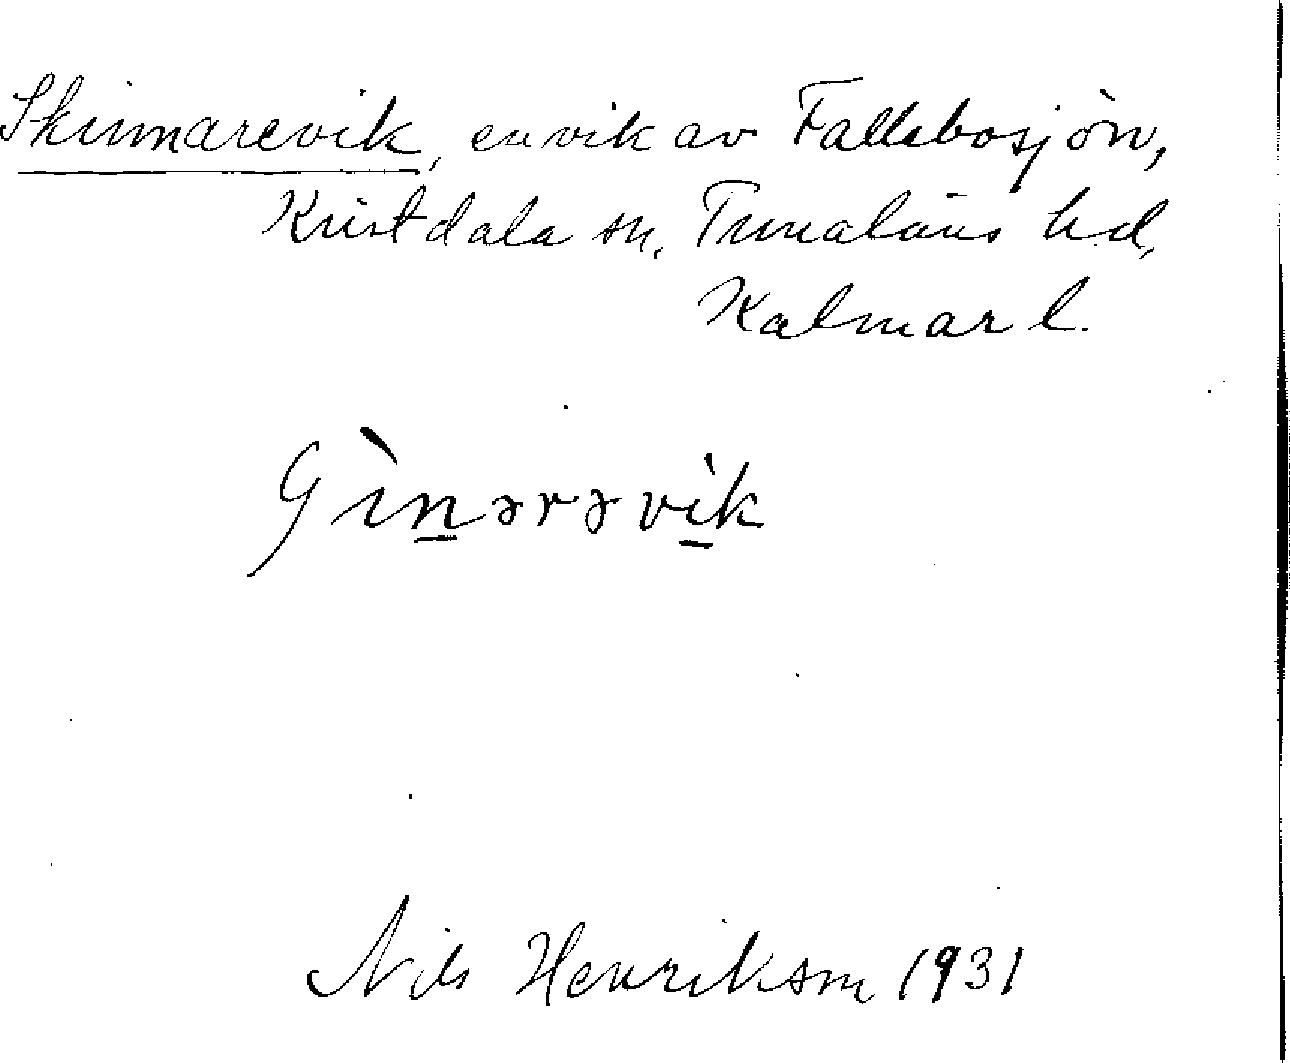 Skinnarevik, en vik av Fallebosjön,
Kristdala sn, Tunaläns hd,
Kalmar l.
Gìnərəvìk
Nils Henrikson 1931